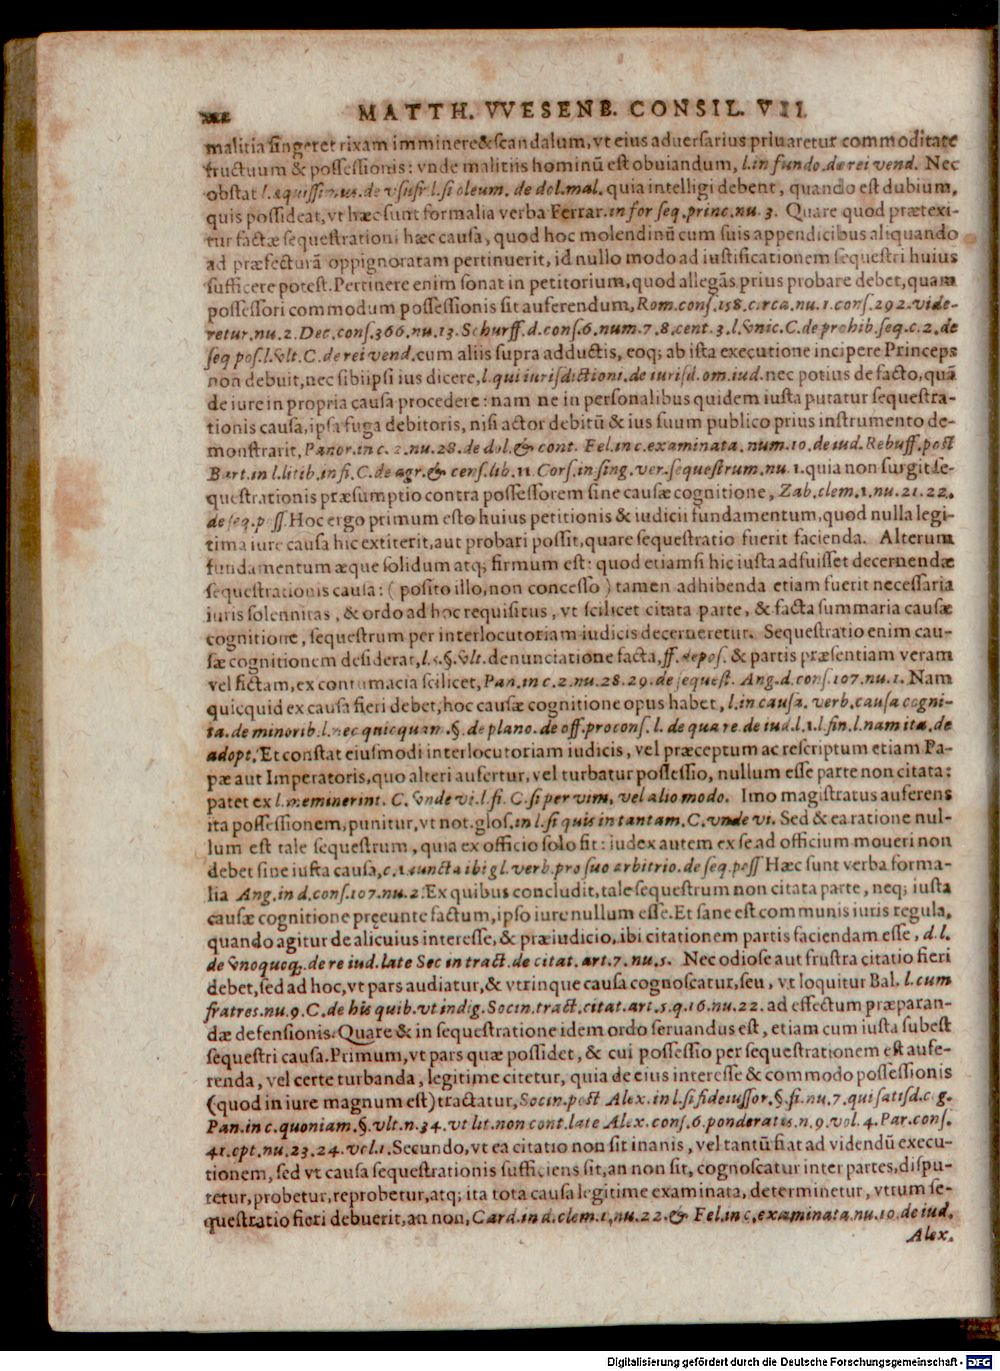 MATTH. VVESENB. CONSIL. VII.
malitia fingeret rixam imminere & scandalum, vt eius aduersarius priuaretur commoditate
fructuum & possessionis: vnde malitiis hominũ est obuiandum, l. in fundo. de rei vend. Nec
obstat l. æquissimus. de vsufr. l. si oleum. de dol. mal. quia intelligi debent, quando est dubium,
quis possideat, vt hæc sunt formalia verba Ferrar. in for seq. princ. nu. 3. Quare quod prætexi-
tur factæ sequestrationi hæc causa, quod hoc molendinũ cum suis appendicibus aliquando
ad præfecturã oppignoratam pertinuerit, id nullo modo ad iustificationem sequestri huius
sufficere potest. Pertinere enim sonat in petitorium, quod allegãs prius probare debet, quam
possessori commodum possessionis sit auferendum, Rom. cons. 158. circa. nu. 1. cons. 292. vide-
retur. nu. 2. Dec. cons. 366. nu. 13. Schurff. d. cons. 6. num. 7. 8. cent. 3. l. vnic. C. de prohib. seq. c. 2. de
seq pos. l. vlt. C. de rei vend. cum aliis supra adductis, eoq; ab ista executione incipere Princeps
non debuit, nec sibiipsi ius dicere, l. qui iurisdictioni. de iurisd. om. iud. nec potius de facto, quã
de iure in propria causa procedere: nam ne in personalibus quidem iusta putatur sequestra-
tionis causa, ipsa fuga debitoris, nisi actor debitũ & ius suum publico prius instrumento de-
monstrarit, Panor. in c. 2. nu. 28. de dol. & cont. Fel. in c. examinata. num. 10. de iud. Rebuff. post
Bart. in l. litib. in fi. C. de agr. & cens. lib. 11. Cors. in sing. ver. sequestrum. nu. 1. quia non surgit se-
questrationis præsumptio contra possessorem sine causæ cognitione, Zab. clem. 1. nu. 21. 22.
de seq. poss. Hoc ergo primum esto huius petitionis & iudicii fundamentum, quod nulla legi-
tima iure causa hic extiterit, aut probari possit, quare sequestratio fuerit facienda. Alterum
fundamentum æque solidum atq; firmum est: quod etiamsi hic iusta adfuisset decernendæ
sequestrationis causa: ( posito illo, non concesso ) tamen adhibenda etiam fuerit necessaria
iuris solennitas, & ordo ad hoc requisitus, vt scilicet citata parte, & facta summaria causæ
cognitione, sequestrum per interlocutoriam iudicis decerneretur. Sequestratio enim cau-
sæ cognitionem desiderat, l. 5. §. vlt. denunciatione facta, ff. depos. & partis præsentiam veram
vel fictam, ex contumacia scilicet, Pan. in c. 2. nu. 28. 29. de sequest. Ang. d. cons. 107. nu. 1. Nam
quicquid ex causa fieri debet, hoc causæ cognitione opus habet, l. in causa. verb. causa cogni-
ta. de minorib. l. nec quicquam. §. de plano. de off. procons. l. de qua re. de iud. l. 1. l. fin. l. nam ita. de
adopt. Et constat eiusmodi interlocutoriam iudicis, vel præceptum ac rescriptum etiam Pa-
pæ aut Imperatoris, quo alteri aufertur, vel turbatur possessio, nullum esse parte non citata:
patet ex l. meminerint. C. vnde vi. l. fi. C. si per vim, vel alio modo. Imo magistratus auferens
ita possessionem, punitur, vt not. glos. in l. si quis in tantam. C. vnde vi. Sed & ea ratione nul-
lum est tale sequestrum, quia ex officio solo fit: iudex autem ex se ad officium moueri non
debet sine iusta causa, c. 1. iuncta ibi gl. verb. pro suo arbitrio. de seq. poss Hæc sunt verba forma-
lia Ang. in d. cons. 107. nu. 2. Ex quibus concludit, tale sequestrum non citata parte, neq; iusta
causæ cognitione pręeunte factum, ipso iure nullum esse. Et sane est communis iuris regula,
quando agitur de alicuius interesse, & præiudicio, ibi citationem partis faciendam esse, d. l.
de vnoquoq. de re iud. late Soc in tract. de citat. art. 7. nu. 5. Nec odiose aut frustra citatio fieri
debet, sed ad hoc, vt pars audiatur, & vtrinque causa cognoscatur, seu, vt loquitur Bal. l. cum
fratres. nu. 9. C. de his quib. vt indig. Socin. tract. citat. art. 5. q. 16. nu. 22. ad effectum præparan-
dæ defensionis. Quare & in sequestratione idem ordo seruandus est, etiam cum iusta subest
sequestri causa. Primum, vt pars quæ possidet, & cui possessio per sequestrationem est aufe-
renda, vel certe turbanda, legitime citetur, quia de eius interesse & commodo possessionis
(quod in iure magnum est) tractatur, Socin. post Alex. in l. si fideiussor. §. fi. nu. 7. qui satisd. cog.
Pan. in c. quoniam. §. vlt. n. 34. vt lit. non cont. late Alex. cons. 6. ponderatis. n. 9. vol. 4. Par. cons.
41. ept. nu. 23. 24. vol. 1. Secundo, vt ea citatio non sit inanis, vel tantũ fiat ad videndũ execu-
tionem, sed vt causa sequestrationis sufficiens sit, an non sit, cognoscatur inter partes, dispu-
tetur, probetur, reprobetur, atq; ita tota causa legitime examinata, determinetur, vtrum se-
questratio fieri debuerit, an non, Card. in d. clem. 1. nu. 22. & Fel. in c. examinata. nu. 10. de iud.
Alex.
Digitalisierung gefördert durch die Deutsche Forschungsgemeinschaft - DFG